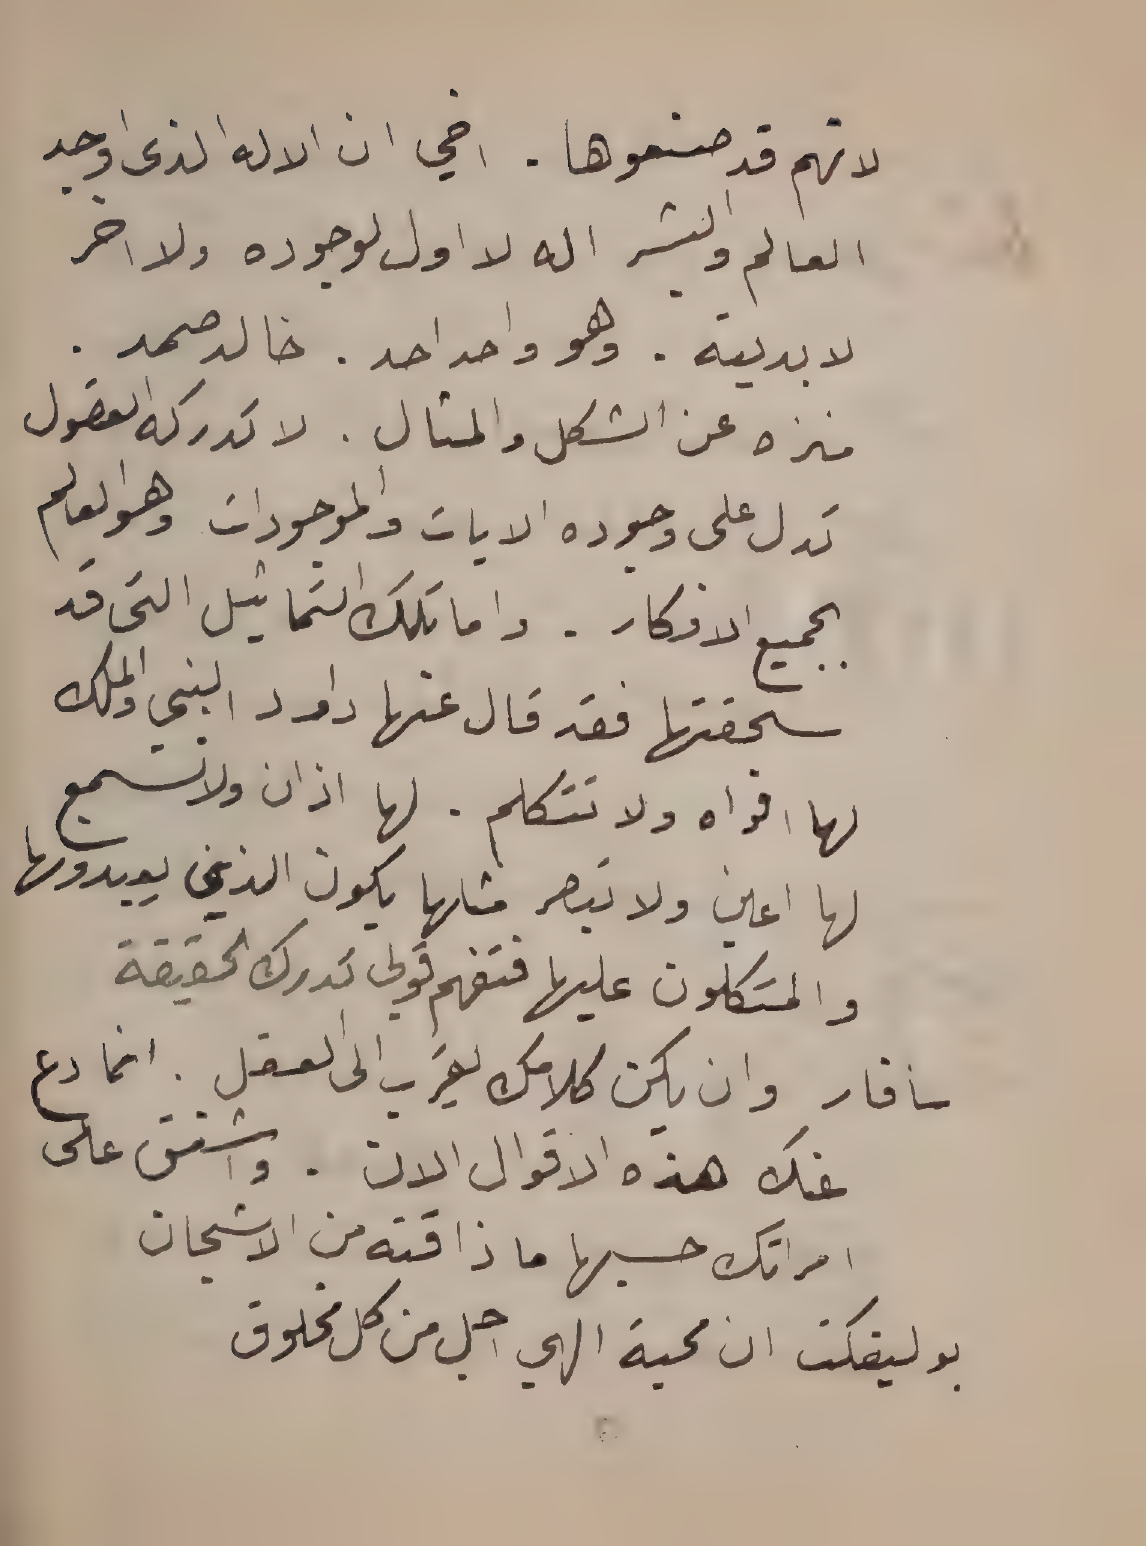 لانهم قد صنعوها . اخي ان الاله الذى اوجد
العالم والبشر اله لا اول لوجوده ولا اخر
لابديته . وهو واحد احد . خالد صمد .
منزه عن الشكل والمثال . لا تدركه العقول
تدل على وجوده الايات والموجودات وهو العالم
بجميع الافكار . واما تلك التماثيل التى قد
سحقتها فقد قال عنها داود النبي والملك
لها افواه ولا تتكلم . لها اذان ولا تسمع
لها اعين ولا تبصر مثلها يكون الذين يعبدونها
والمتكلون عليها فتفهم قولى تدرك الحقيقة
سافار وان يكن كلامك يقرب الى العقل . انما دع
عنك هذه الاقوال الان . واشفق على
امراتك حسبها ما ذاقته من الاشجان
بوليفكت ان محبة الهي اجل من كل مخلوق